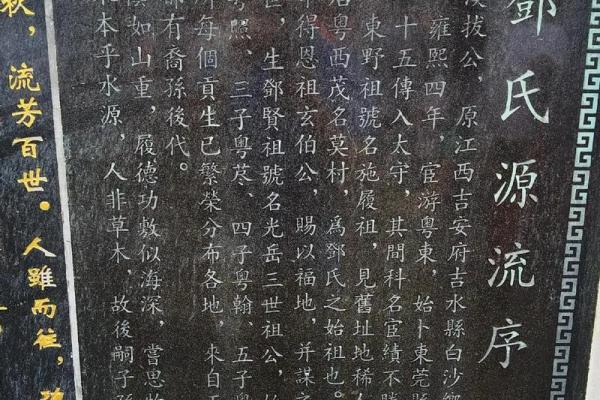 鄧氏源流序
拔公，原江西吉安府吉水縣白沙鄉
雍熙四年，宦游粵東，始卜東莞縣
十五傳入太守，其間科名宦績不勝
東野祖號名施履祖，見舊址地稀人
居粵西茂名莫村，為鄧氏之始祖也。
得恩祖玄伯公，賜以福地，并謀
世，生鄧賢祖號名光岳三世祖公，
粵熙、三子粵荵、四子粵翰、五子粵
每個貢生已繁榮分布各地，來自
有裔孫後代。
如山重，履德功敷似海深，嘗思
本乎水源，人非草木，故後嗣子孫
秋，流芳百世。人雖而往，